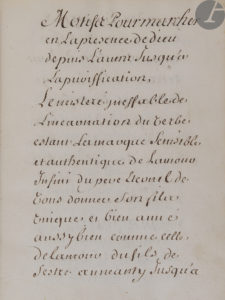 Motifs Pour marcher
en La presence de dieu
depuis L'avent Jusqu'a
La puriffication,
Le mistere ineffable de
L'incarnation du verbe
estant La marque Sensible
et authentique de L'amour
Infini du pere Eternel de
vous donner Son fils
Unique et bien aimé
aussy bien comme celle
de L'amour du fils de
s'estre aneanty Jusqu'a